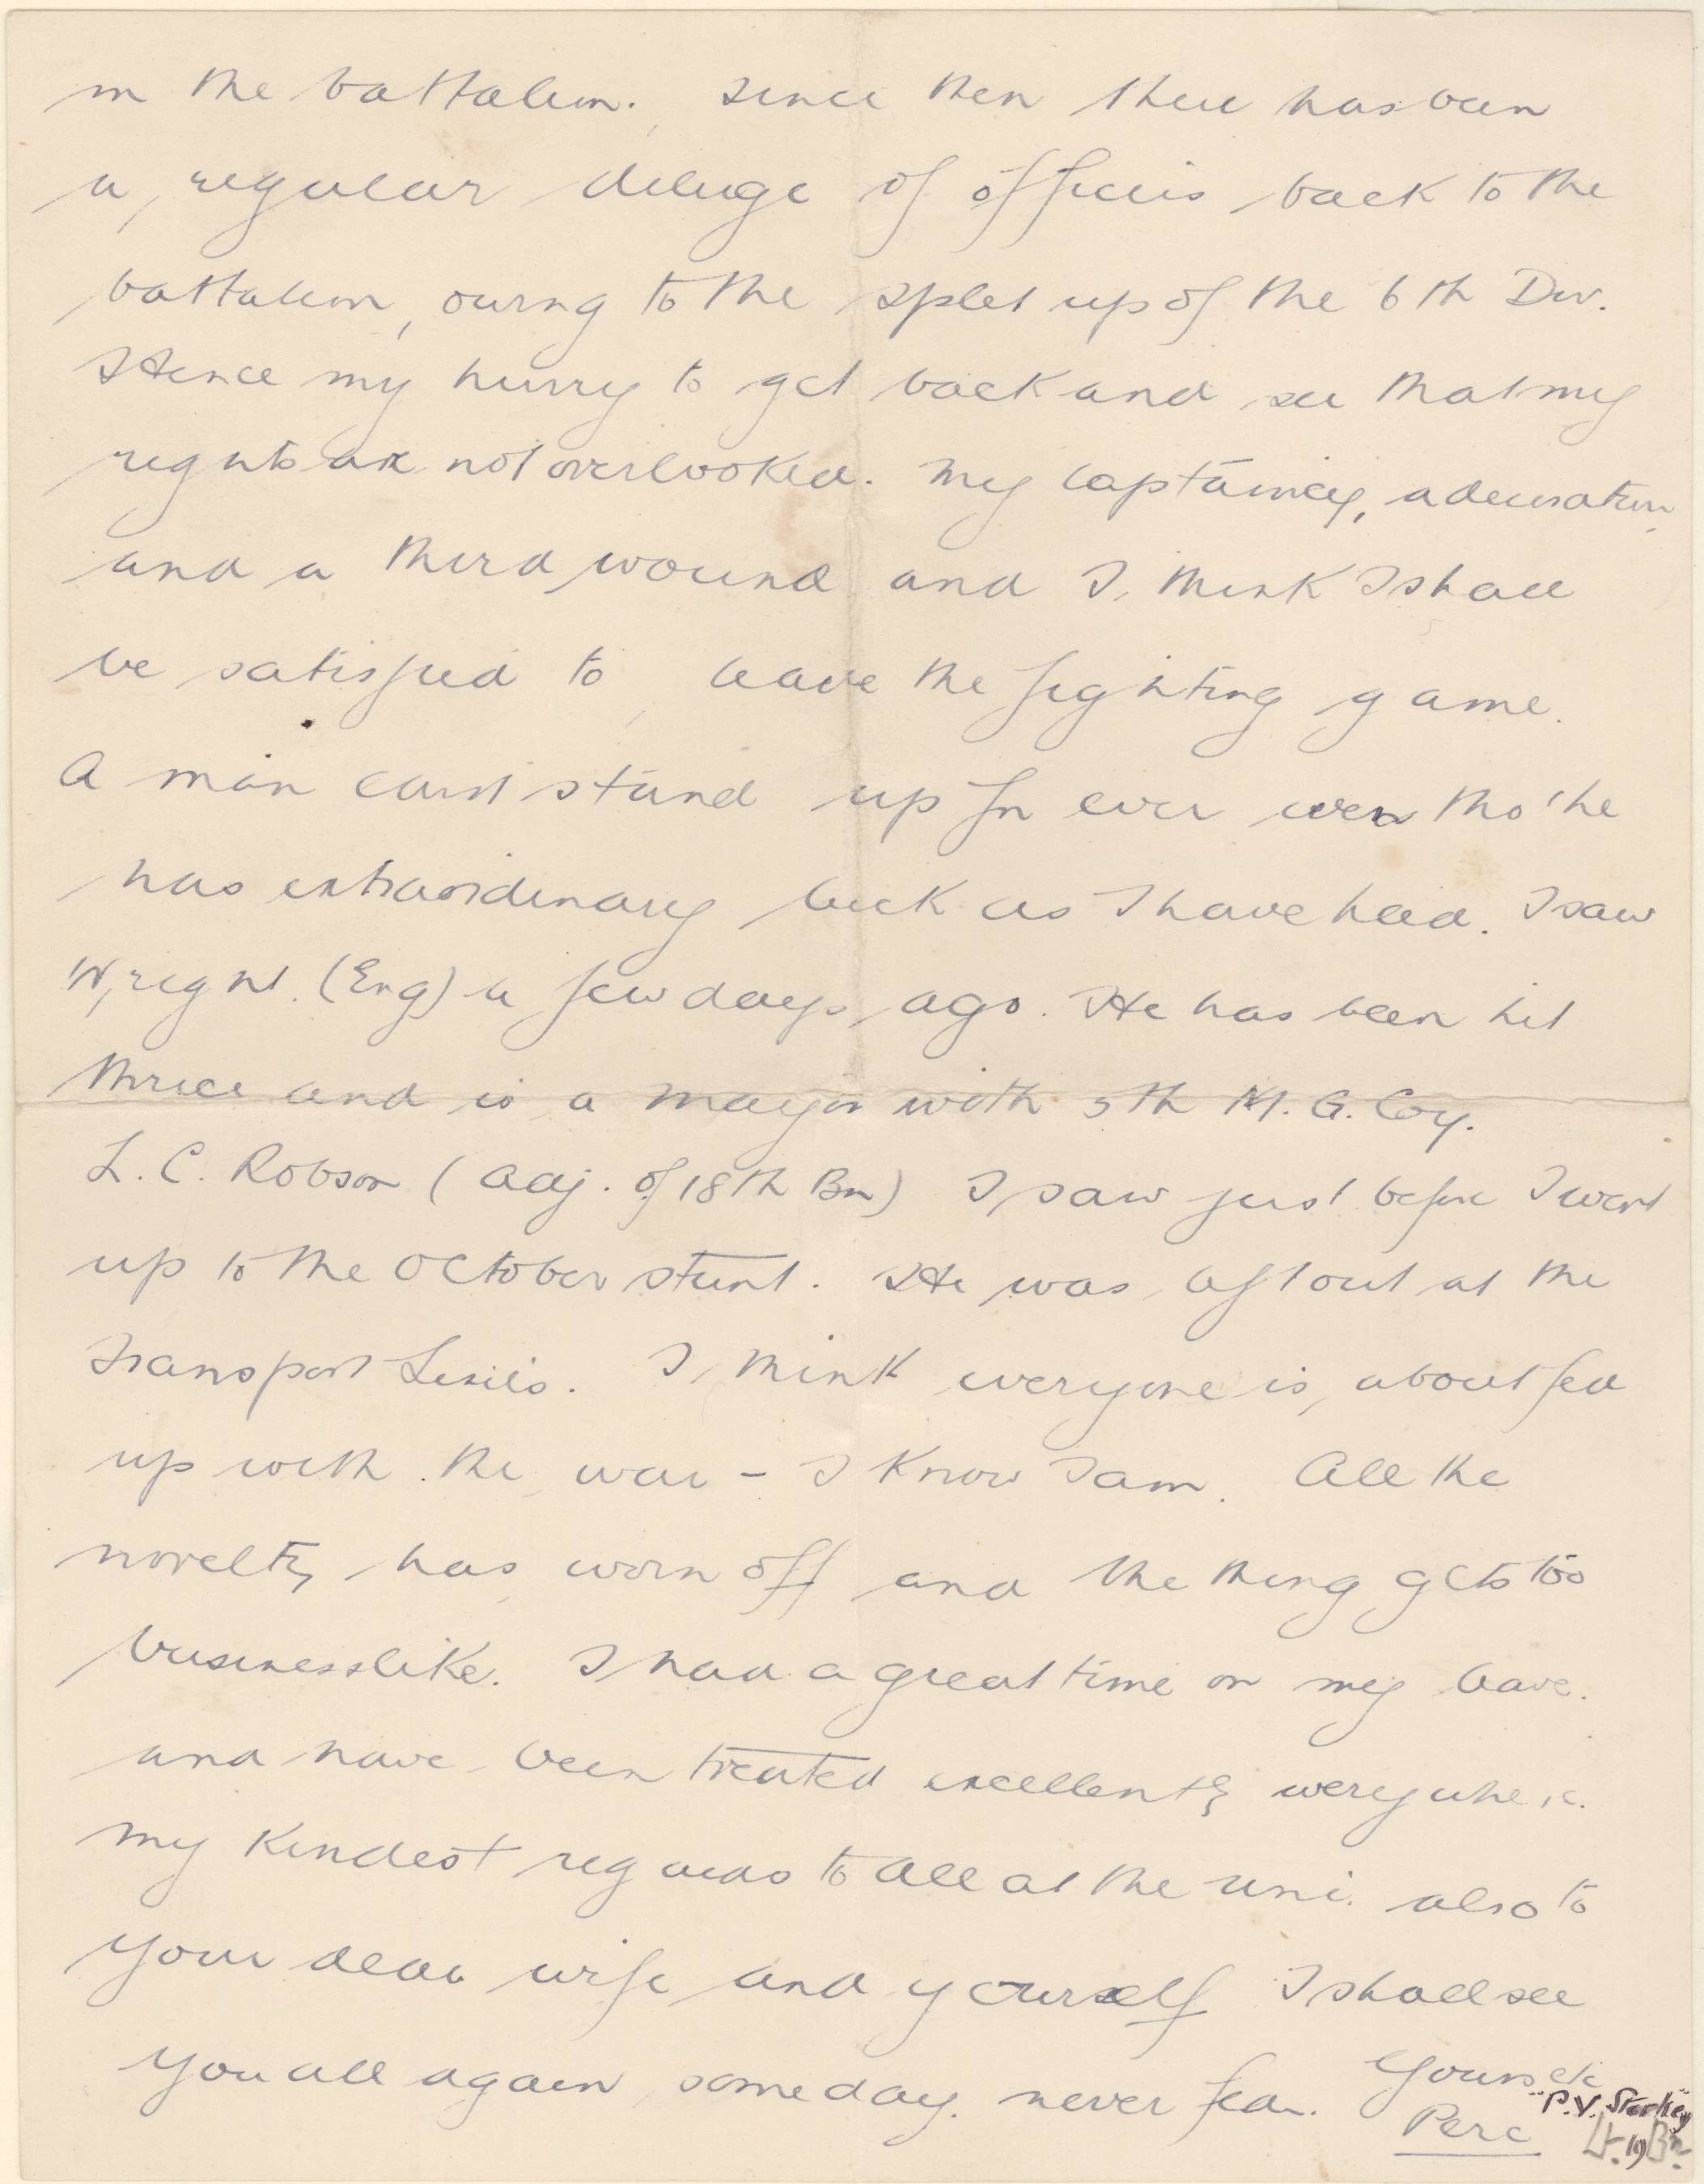 in the battalion. Since then there has been
a regular deluge of officers back to the
battalion, owing to the split up of the 6th Div.
Hence my hurry to get back and see that my
rights are not overlooked. My captaincy, a decoration
and a third wound and I think I shall
be satisfied to leave the fighting game.
A man cant stand up for ever even tho' he
has extraordinary luck as I have had. I saw
Wright (Eng) a few days ago. He has been hit
thrice and is a major with 5th M. G. Coy.
L. C. Robson (adj. of 18th Bn) I saw just before I went
up to the October stunt. He was left out at the
Transport Lines. I think everyone is about fed
up with the war - I know I am. All the
novelty has worn off and the thing gets too
businesslike. I had a great time on my leave.
and have been treated excellently everywhere.
My kindest regards to all at the Uni. also to
your dear wife and yourself I shall see
you all again some day. never fear. Yours etc
Perc
"P.V. Storkey"
Lt. 19 Bn.